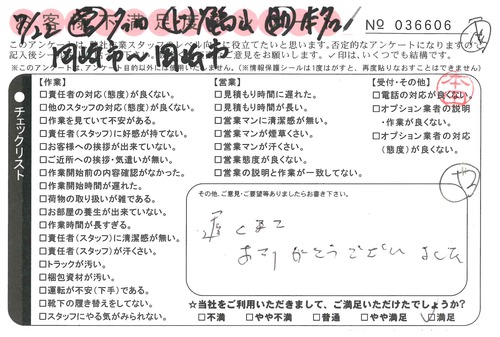 お客様不満足度
№ 036606
このアンケートは弊社作業スタッフのレベル向上に役立てたいと思います。否定的なアンケートになりますので
記入後シールを
ご意見をお願いします。✓印は、いくつでも結構です。
※このアンケートは、アンケート目的以外には使用いたしません。(※情報保護シールは1度はがすと、再度貼りなおすことはできません)
岡崎市〜岡崎市
チェックリスト
【作業】
□責任者の対応(態度)が良くない。
□他のスタッフの対応(態度)が良くない。
□作業を見ていて不安がある。
□責任者(スタッフ)に好感が持てない。
□お客様への挨拶が出来ていない。
□ご近所への挨拶・気遣いが無い。
□作業開始前の内容確認がなかった。
□作業開始時間が遅れた。
□荷物の取り扱いが雑である。
□お部屋の養生が出来ていない。
□作業時間が長すぎる。
□責任者(スタッフ)に清潔感が無い。
□責任者(スタッフ)が汗くさい。
□トラックが汚い。
□梱包資材が汚い。
□運転が不安(下手)である。
□靴下の履き替えをしてない。
□スタッフにやる気がみられない。
【営業】
□見積もり時間に遅れた。
□見積もり時間が長い。
□営業マンに清潔感が無い。
□営業マンが煙草くさい。
□営業マンが汗くさい。
□営業態度が良くない。
□営業の説明と作業が一致してない。
【受付・その他】
□電話の対応が良くない。
□オプション業者の説明
・作業が良くない。
□オプション業者の対応
(態度)が良くない。
その他、ご意見・ご要望等ありましたらお書き下さい。
遅くまで
ありがとうございました
☆当社をご利用いただきまして、ご満足いただけたでしょうか?
□不満 □やや不満 □普通 □やや満足 ☑満足